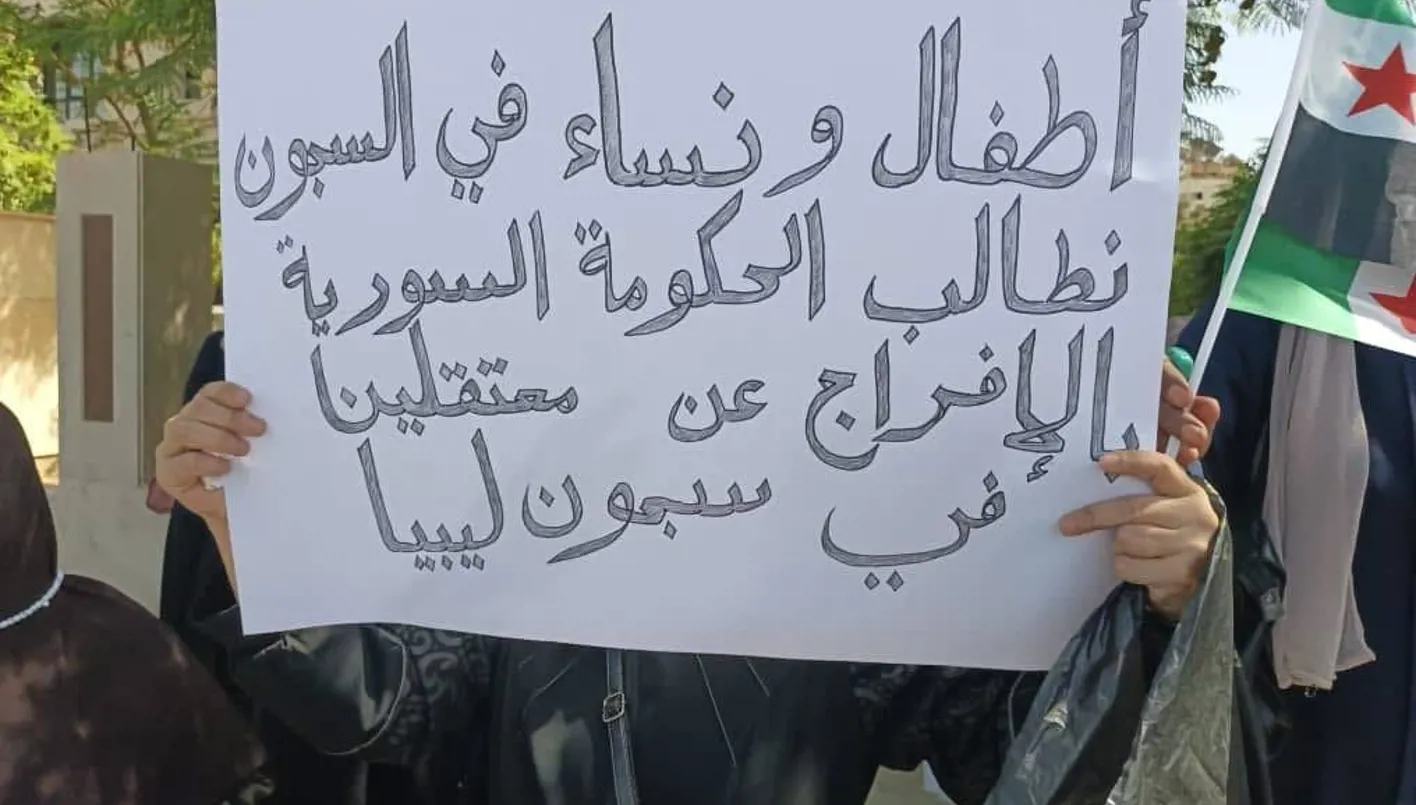 أطفال و نساء في السجون
نطالب الحكومة السورية
بالإفراج عن معتقلينا
في سجون ليبيا